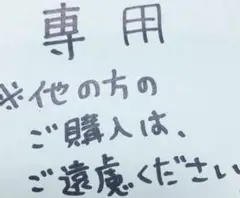 専用
※他の方の
ご購入は、
ご遠慮ください